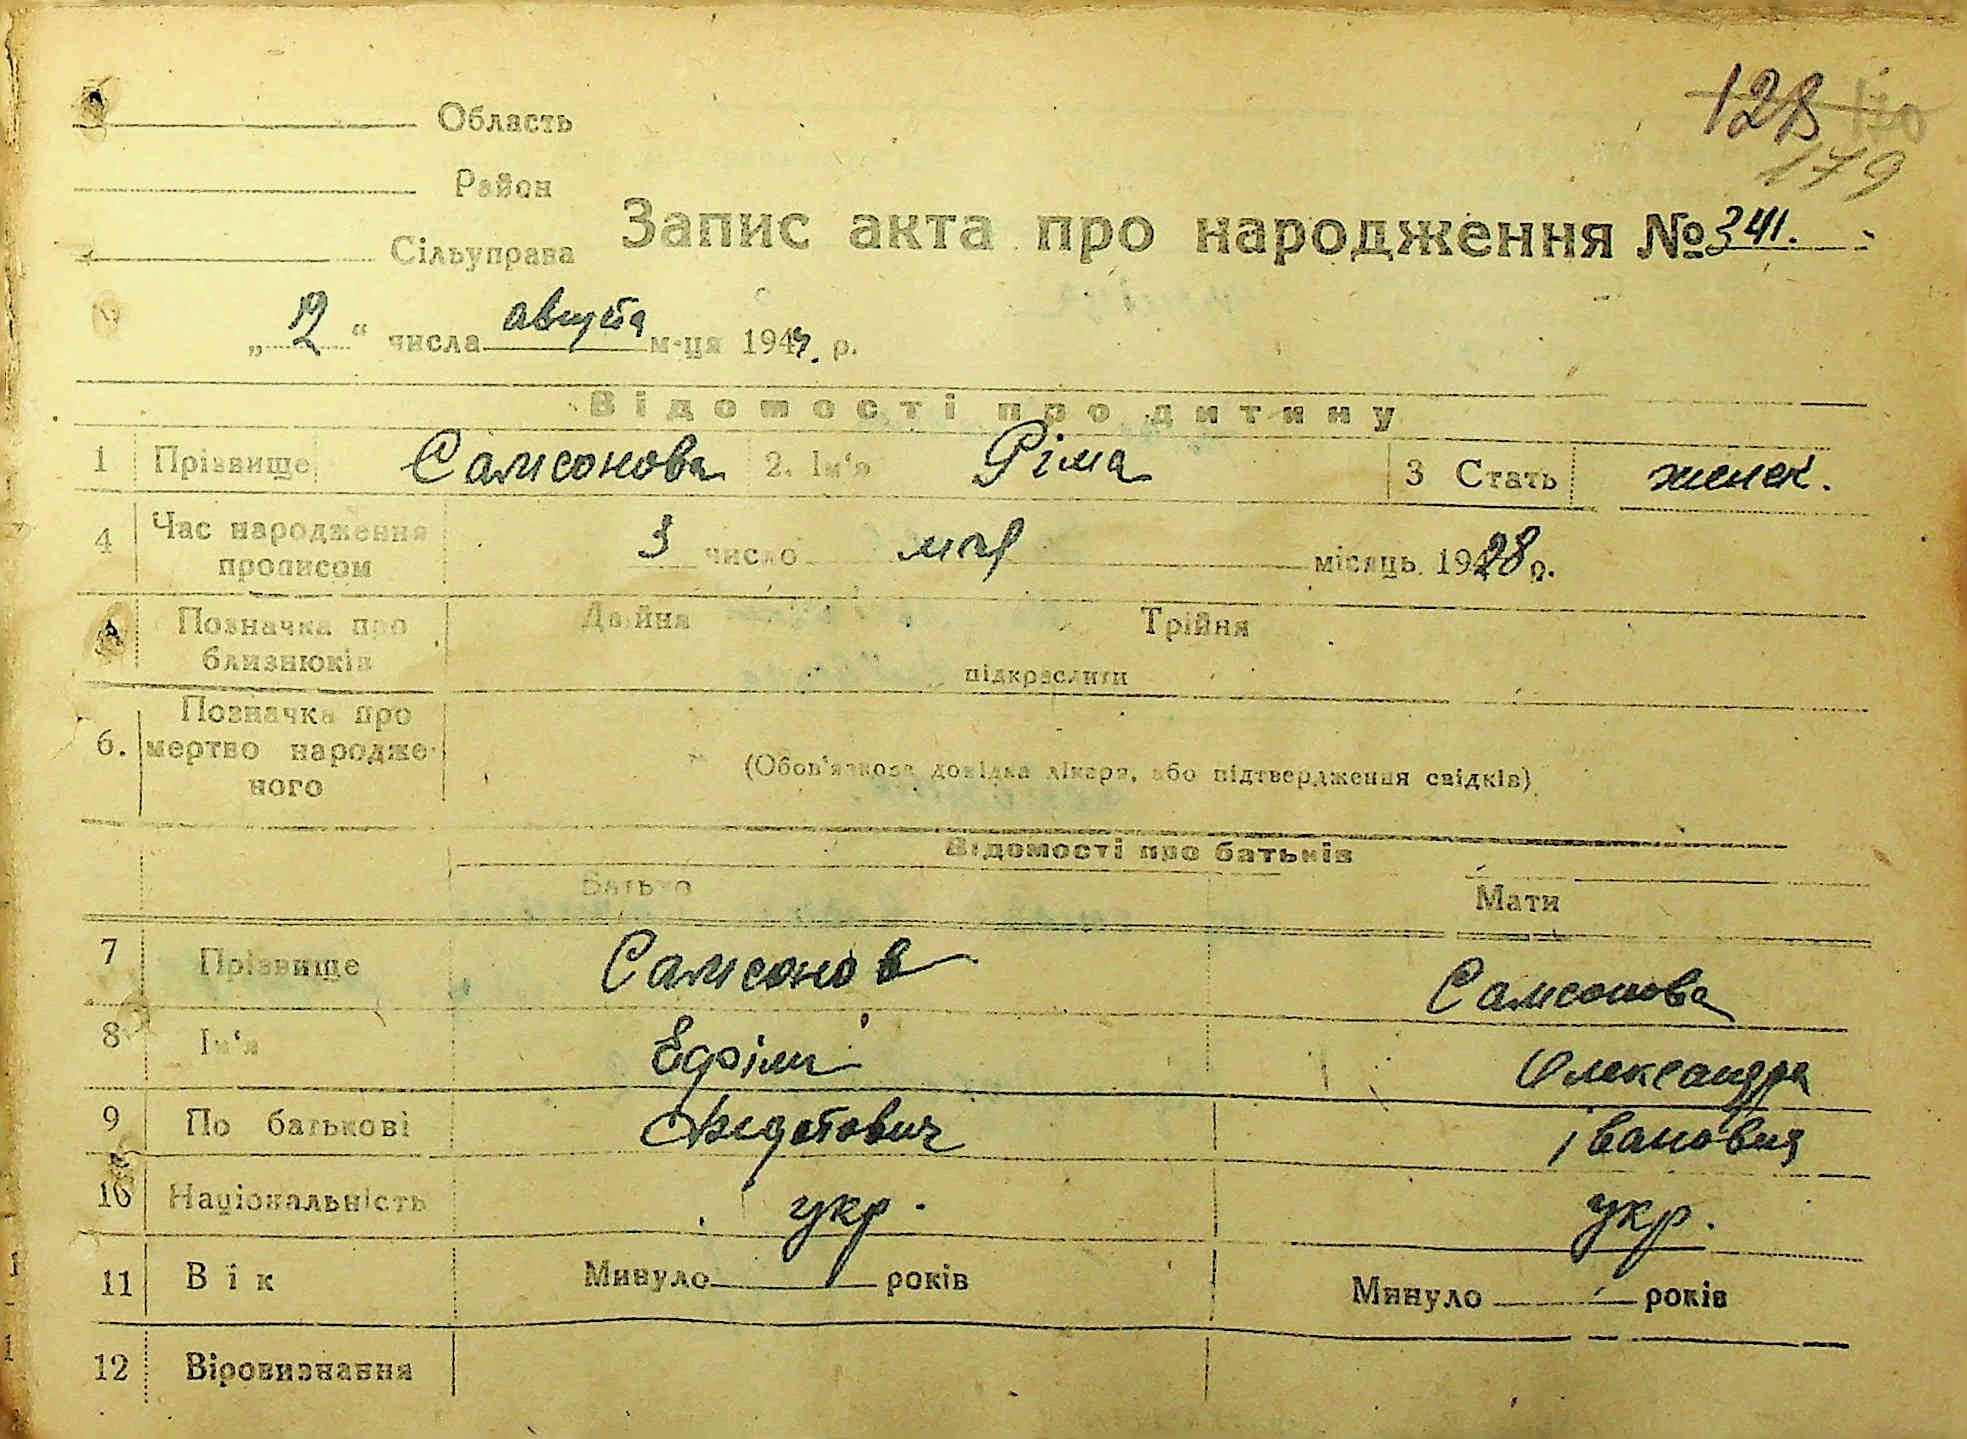 128 170
179
Область
Район
Сільуправа
Запис акта про народження № 341.
„ 2 “ числа августа м-ця 194 р.
Відомості про дитину
1 Прізвище Самсонова 2. Ім'я Ріма 3 Стать женск.
4 Час народження прописом 3 число мая місяць 1928 р.
Позначка про близнюків Двійня Трійня
підкреслити
6. Позначка про мертво народженого (Обов'язкова довідка лікаря, або підтвердження свідків)
Відомості про батьків
Батько Мати
7 Прізвище Самсонов Самсонова
8 Ім'я Ефрім Олександра
9 По батькові Федотович Івановна
10 Національність укр. укр.
11 Вік Минуло років Минуло років
12 Віровизнання